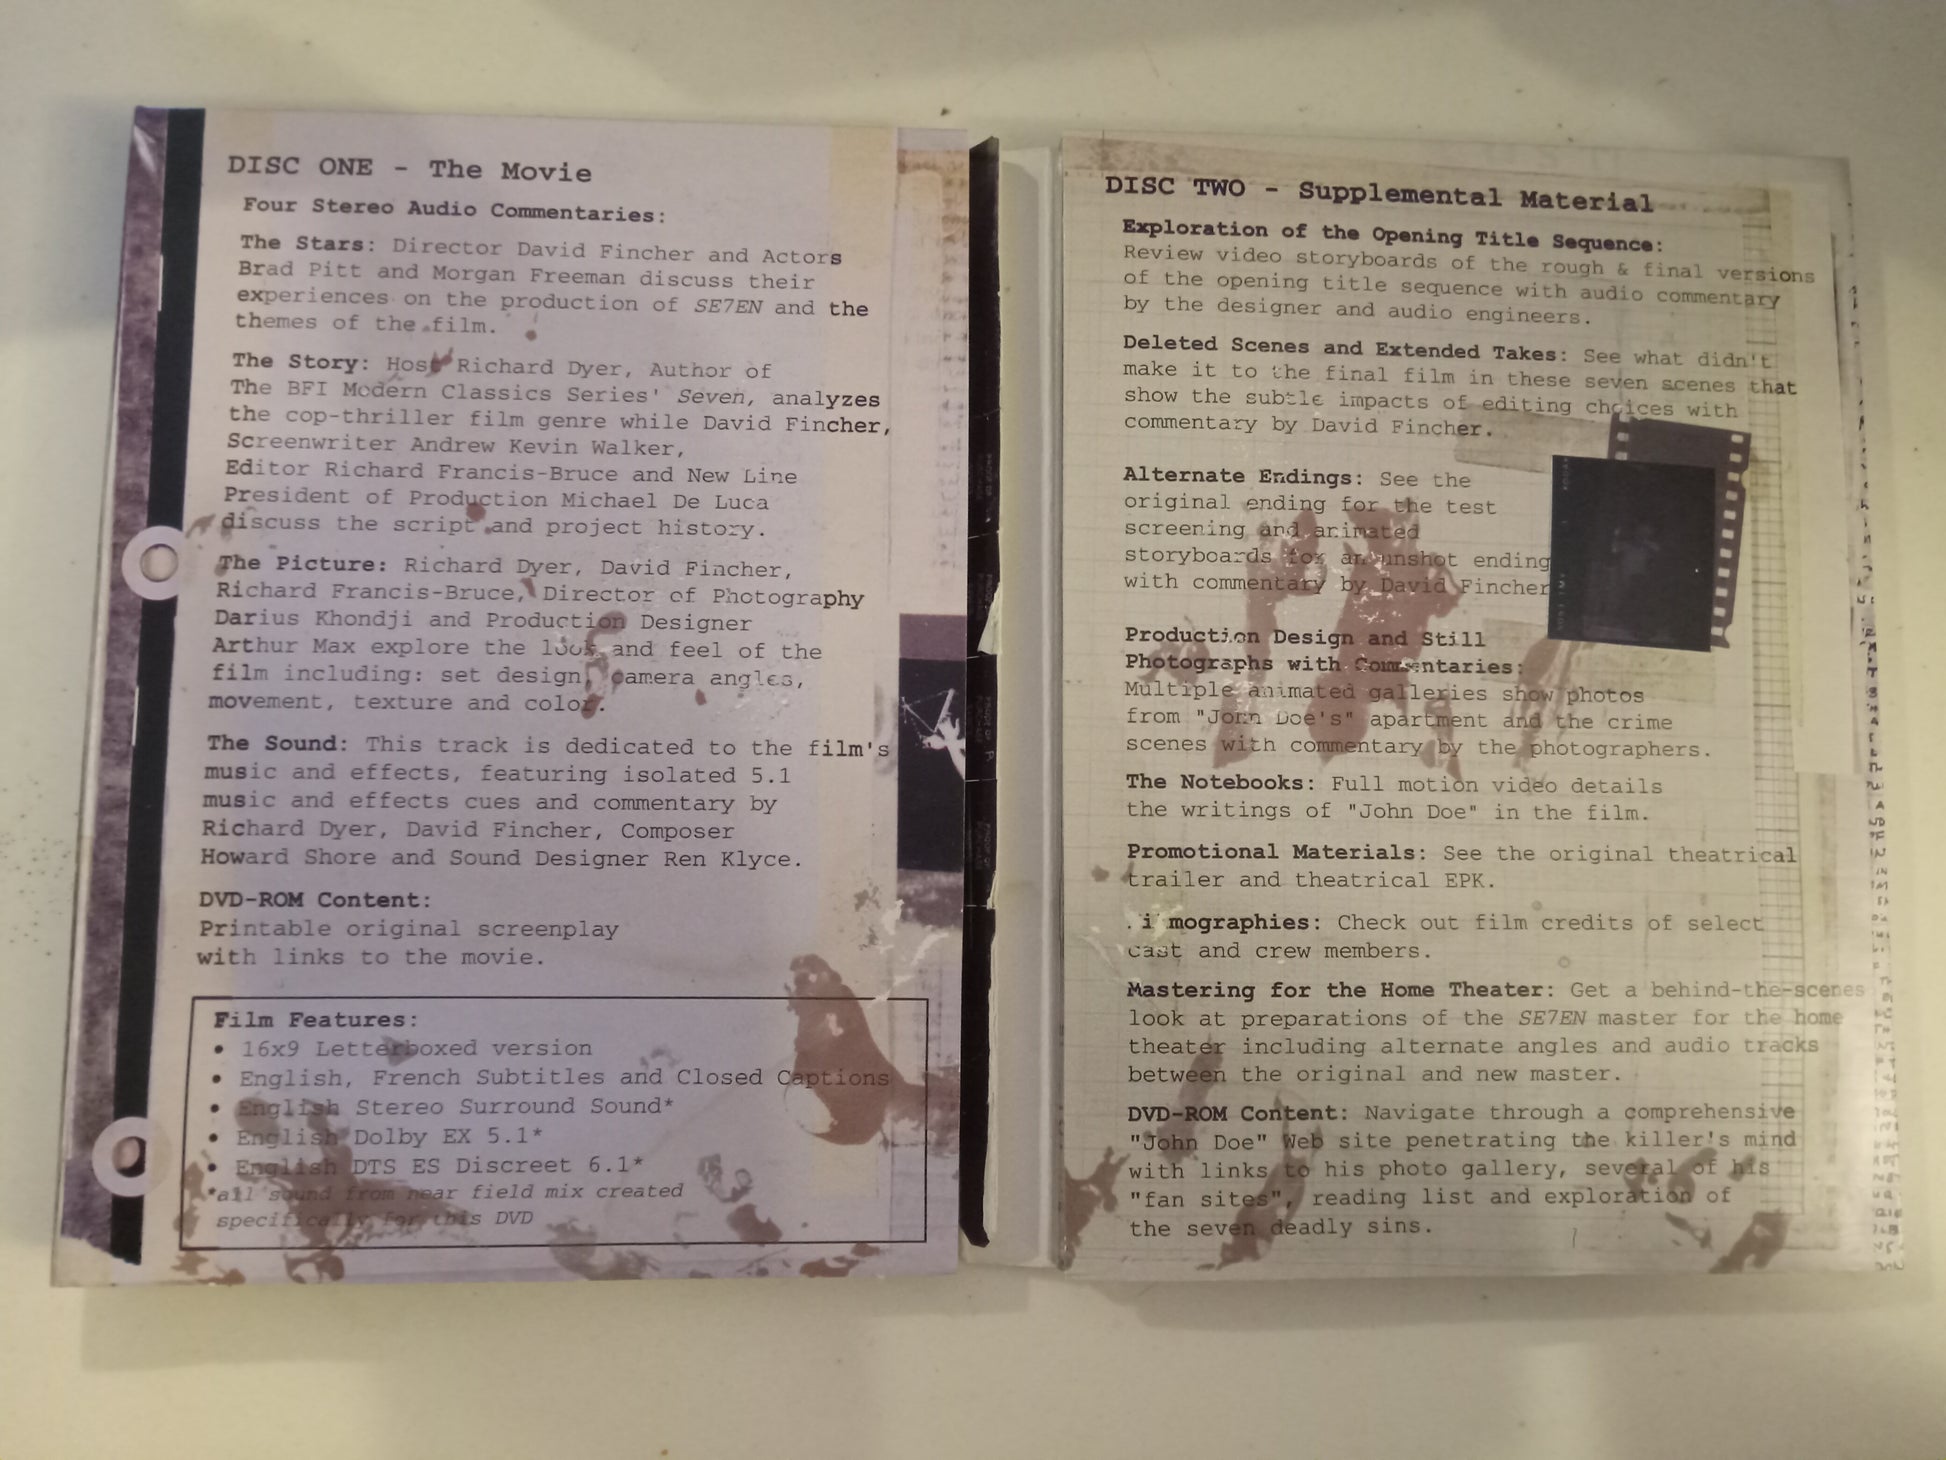 DISC ONE - The Movie
Four Stereo Audio Commentaries:
The Stars: Director David Fincher and Actors
Brad Pitt and Morgan Freeman discuss their
experiences on the production of SE7EN and the
themes of the film.
The Story: Host Richard Dyer, Author of
The BFI Modern Classics Series' Seven, analyzes
the cop-thriller film genre while David Fincher,
Screenwriter Andrew Kevin Walker,
Editor Richard Francis-Bruce and New Line
President of Production Michael De Luca
discuss the script and project history.
The Picture: Richard Dyer, David Fincher,
Richard Francis-Bruce, Director of Photography
Darius Khondji and Production Designer
Arthur Max explore the look and feel of the
film including: set design, camera angles,
movement, texture and color.
The Sound: This track is dedicated to the film's
music and effects, featuring isolated 5.1
music and effects cues and commentary by
Richard Dyer, David Fincher, Composer
Howard Shore and Sound Designer Ren Klyce.
DVD-ROM Content:
Printable original screenplay
with links to the movie.
Film Features:
• 16x9 Letterboxed version
• English, French Subtitles and Closed Captions
• English Stereo Surround Sound*
• English Dolby EX 5.1*
• English DTS ES Discreet 6.1*
*all sound from near field mix created
specifically for this DVD
DISC TWO - Supplemental Material
Exploration of the Opening Title Sequence:
Review video storyboards of the rough & final versions
of the opening title sequence with audio commentary
by the designer and audio engineers.
Deleted Scenes and Extended Takes: See what didn't
make it to the final film in these seven scenes that
show the subtle impacts of editing choices with
commentary by David Fincher.
Alternate Endings: See the
original ending for the test
screening and animated
storyboards for an unshot ending
with commentary by David Fincher
Production Design and Still
Photographs with Commentaries:
Multiple animated galleries show photos
from "John Doe's" apartment and the crime
scenes with commentary by the photographers.
The Notebooks: Full motion video details
the writings of "John Doe" in the film.
Promotional Materials: See the original theatrical
trailer and theatrical EPK.
Filmographies: Check out film credits of select
cast and crew members.
Mastering for the Home Theater: Get a behind-the-scenes
look at preparations of the SE7EN master for the home
theater including alternate angles and audio tracks
between the original and new master.
DVD-ROM Content: Navigate through a comprehensive
"John Doe" Web site penetrating the killer's mind
with links to his photo gallery, several of his
"fan sites", reading list and exploration of
the seven deadly sins.